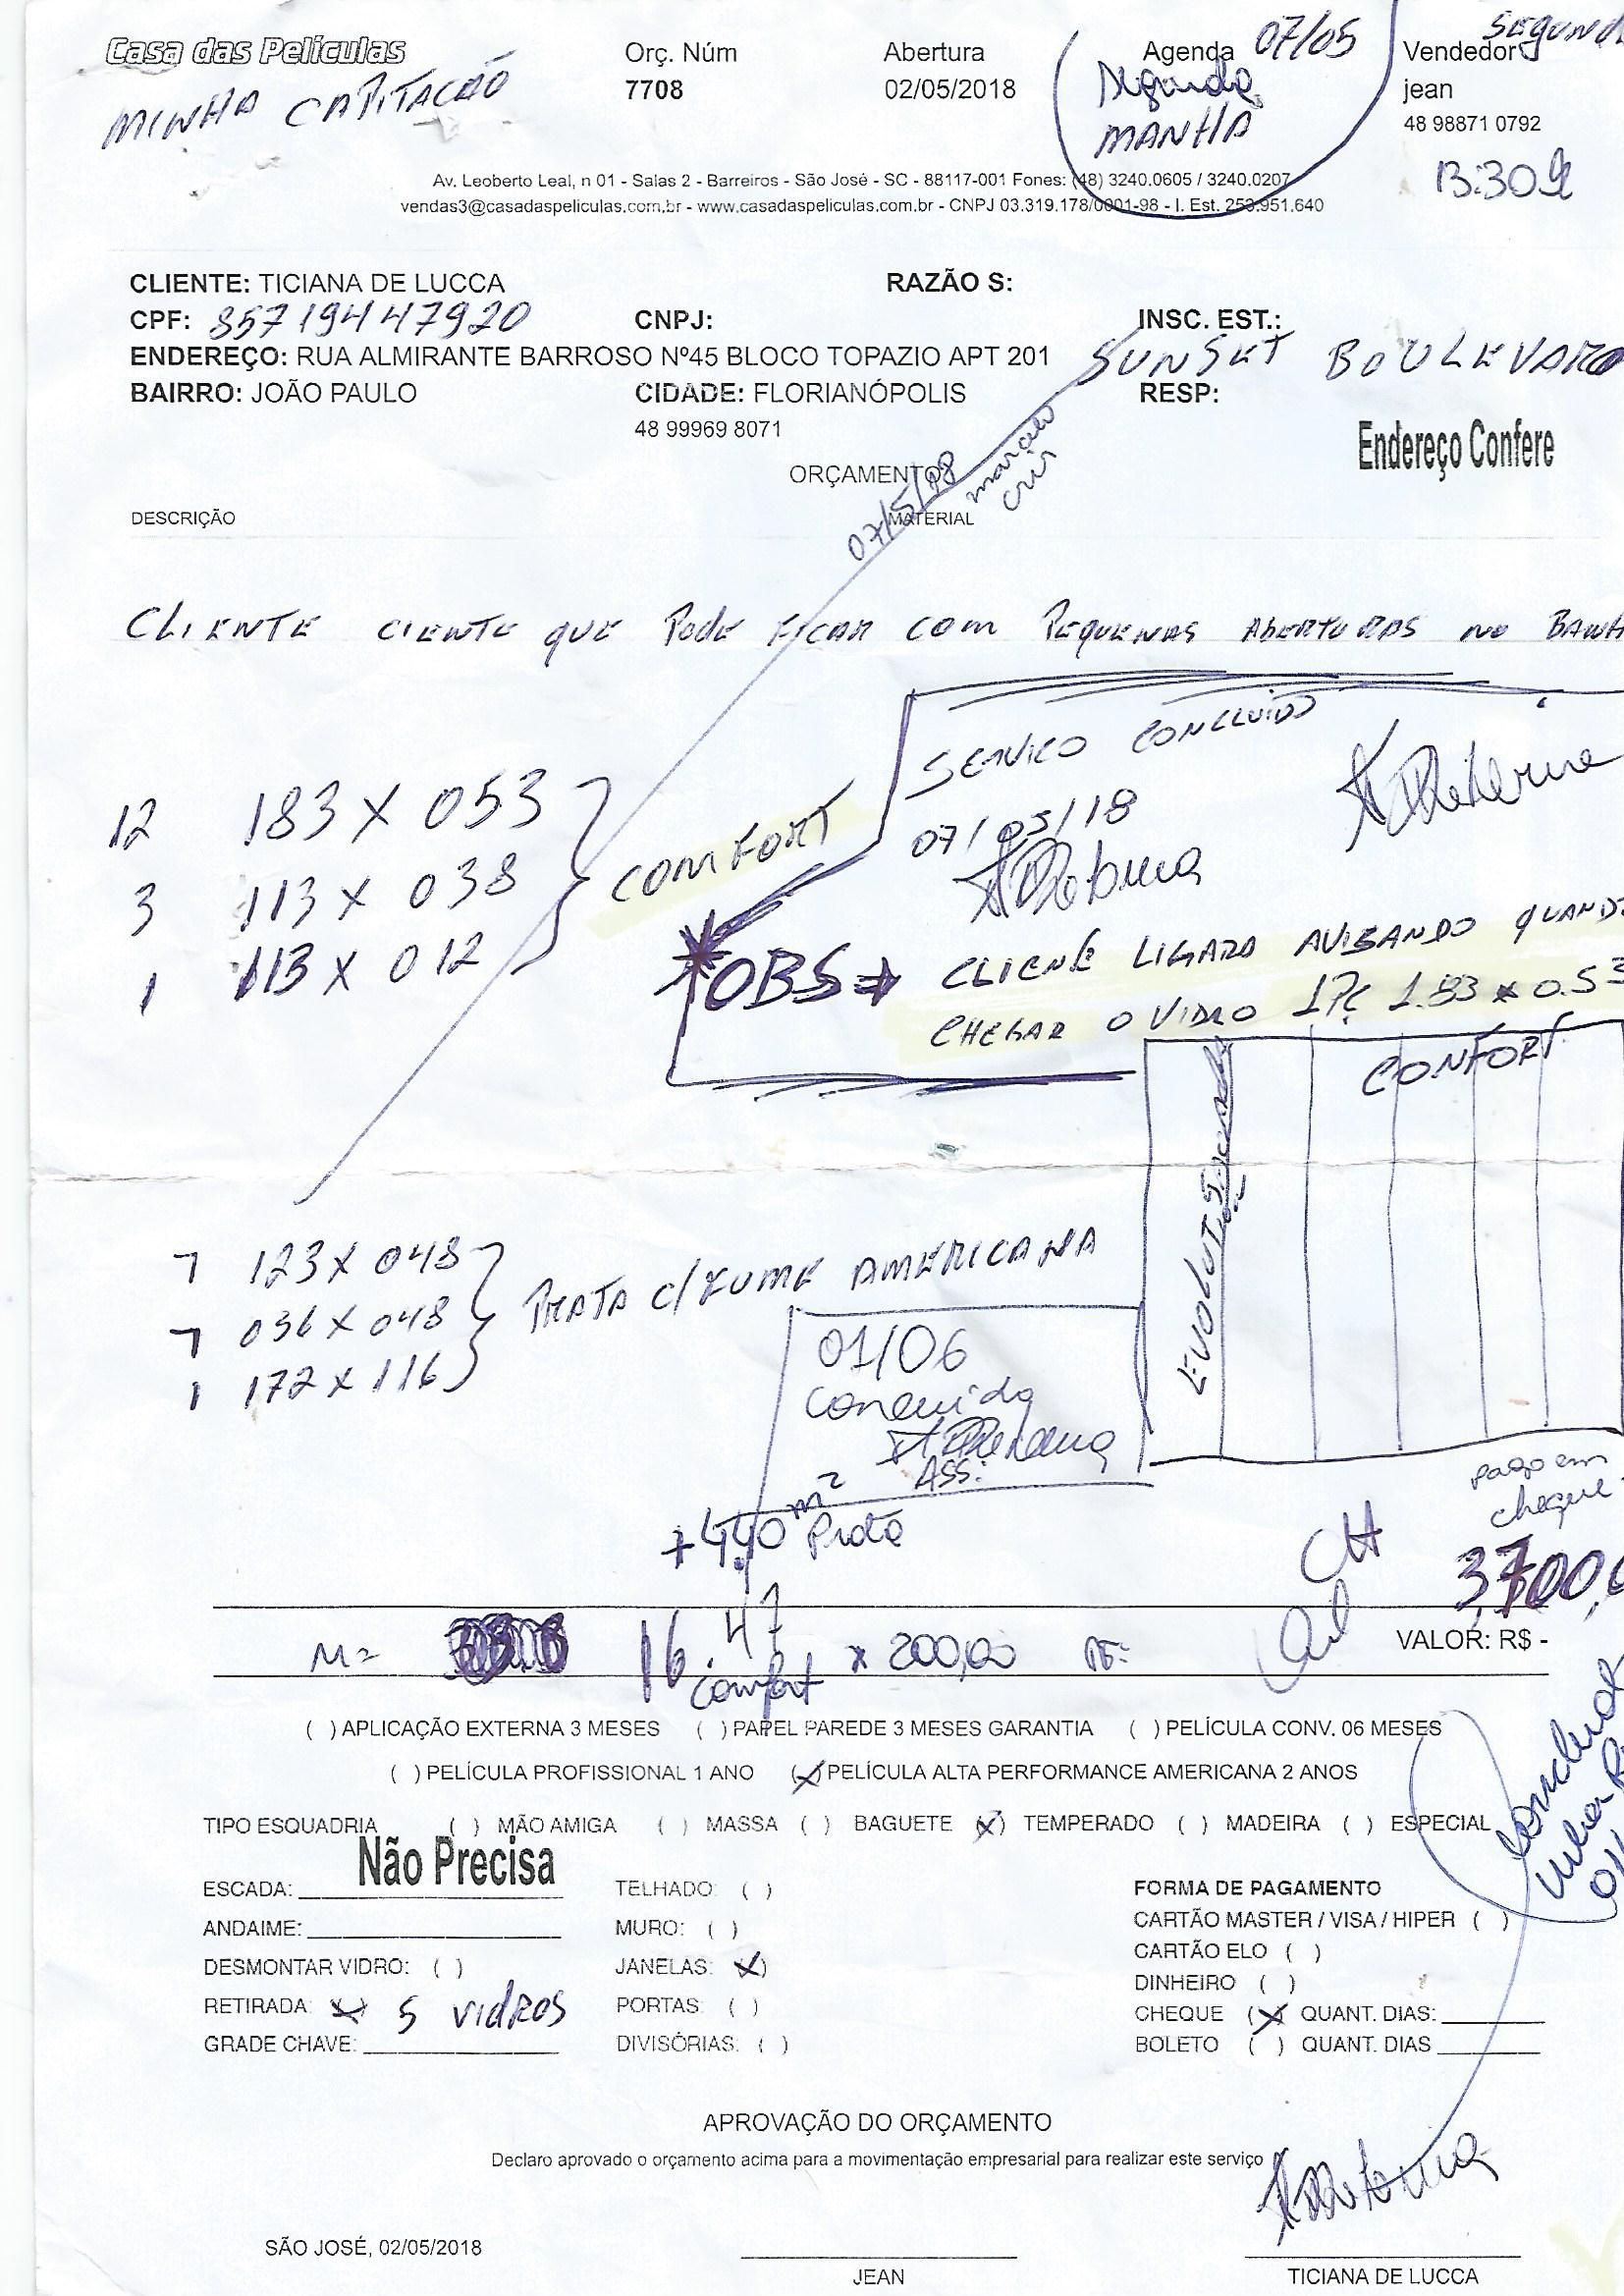 Casa das Películas
MINHA CAPITACÃO
Orç. Núm
7708
Abertura
02/05/2018
Agenda 07/05
Segunda
MANHÃ
Segund
Vendedor
jean
48 98871 0792
13:30
Av. Leoberto Leal, n 01 - Salas 2 - Barreiros - São José - SC - 88117-001 Fones: (48) 3240.0605 / 3240.0207
vendas3@casadaspeliculas.com.br - www.casadaspeliculas.com.br - CNPJ 03.319.178/0001-98 - I. Est. 253.951.640
CLIENTE: TICIANA DE LUCCA RAZÃO S:
CPF: 85719447920 CNPJ: INSC. EST.:
ENDEREÇO: RUA ALMIRANTE BARROSO Nº45 BLOCO TOPAZIO APT 201 SUNSET BOULEVARD
BAIRRO: JOÃO PAULO CIDADE: FLORIANÓPOLIS RESP:
48 99969 8071
Endereço Confere
ORÇAMENTO
07/5/18 marcelo
cris
DESCRIÇÃO MATERIAL
CLIENTE CIENTE QUE PODE FICAR COM PEQUENAS ABERTURAS NO BANH
SERVICO CONCLUIDO
07/05/18
12 183 X 053
3 113 X 038
1 113 X 012
COMFORT
*OBS⇒ CLIENE LIGARA AVISANDO QUANDO
CHEGAR O VIDRO 1PÇ 1.83 x 0.53
CONFORT
7 123 X 048
7 036 X 048
1 172 X 116
PRATA C/FUME AMERICANA
01/06
Concluido
ASS:
+4.40 m² Prata
pago em
cheque
CH
3700,0
M= 16.47 x 200,00
comfort
VALOR: R$ -
( ) APLICAÇÃO EXTERNA 3 MESES ( ) PAPEL PAREDE 3 MESES GARANTIA ( ) PELÍCULA CONV. 06 MESES
( ) PELÍCULA PROFISSIONAL 1 ANO (X) PELÍCULA ALTA PERFORMANCE AMERICANA 2 ANOS
TIPO ESQUADRIA ( ) MÃO AMIGA ( ) MASSA ( ) BAGUETE (X) TEMPERADO ( ) MADEIRA ( ) ESPECIAL
Não Precisa
ESCADA: TELHADO: ( ) FORMA DE PAGAMENTO
ANDAIME: MURO: ( ) CARTÃO MASTER / VISA / HIPER ( )
DESMONTAR VIDRO: ( ) JANELAS: (X) CARTÃO ELO ( )
DINHEIRO ( )
RETIRADA: (X) 5 vidros PORTAS: ( ) CHEQUE (X) QUANT. DIAS:
GRADE CHAVE: DIVISÓRIAS: ( ) BOLETO ( ) QUANT. DIAS
APROVAÇÃO DO ORÇAMENTO
Declaro aprovado o orçamento acima para a movimentação empresarial para realizar este serviço
SÃO JOSÉ, 02/05/2018
JEAN
TICIANA DE LUCCA